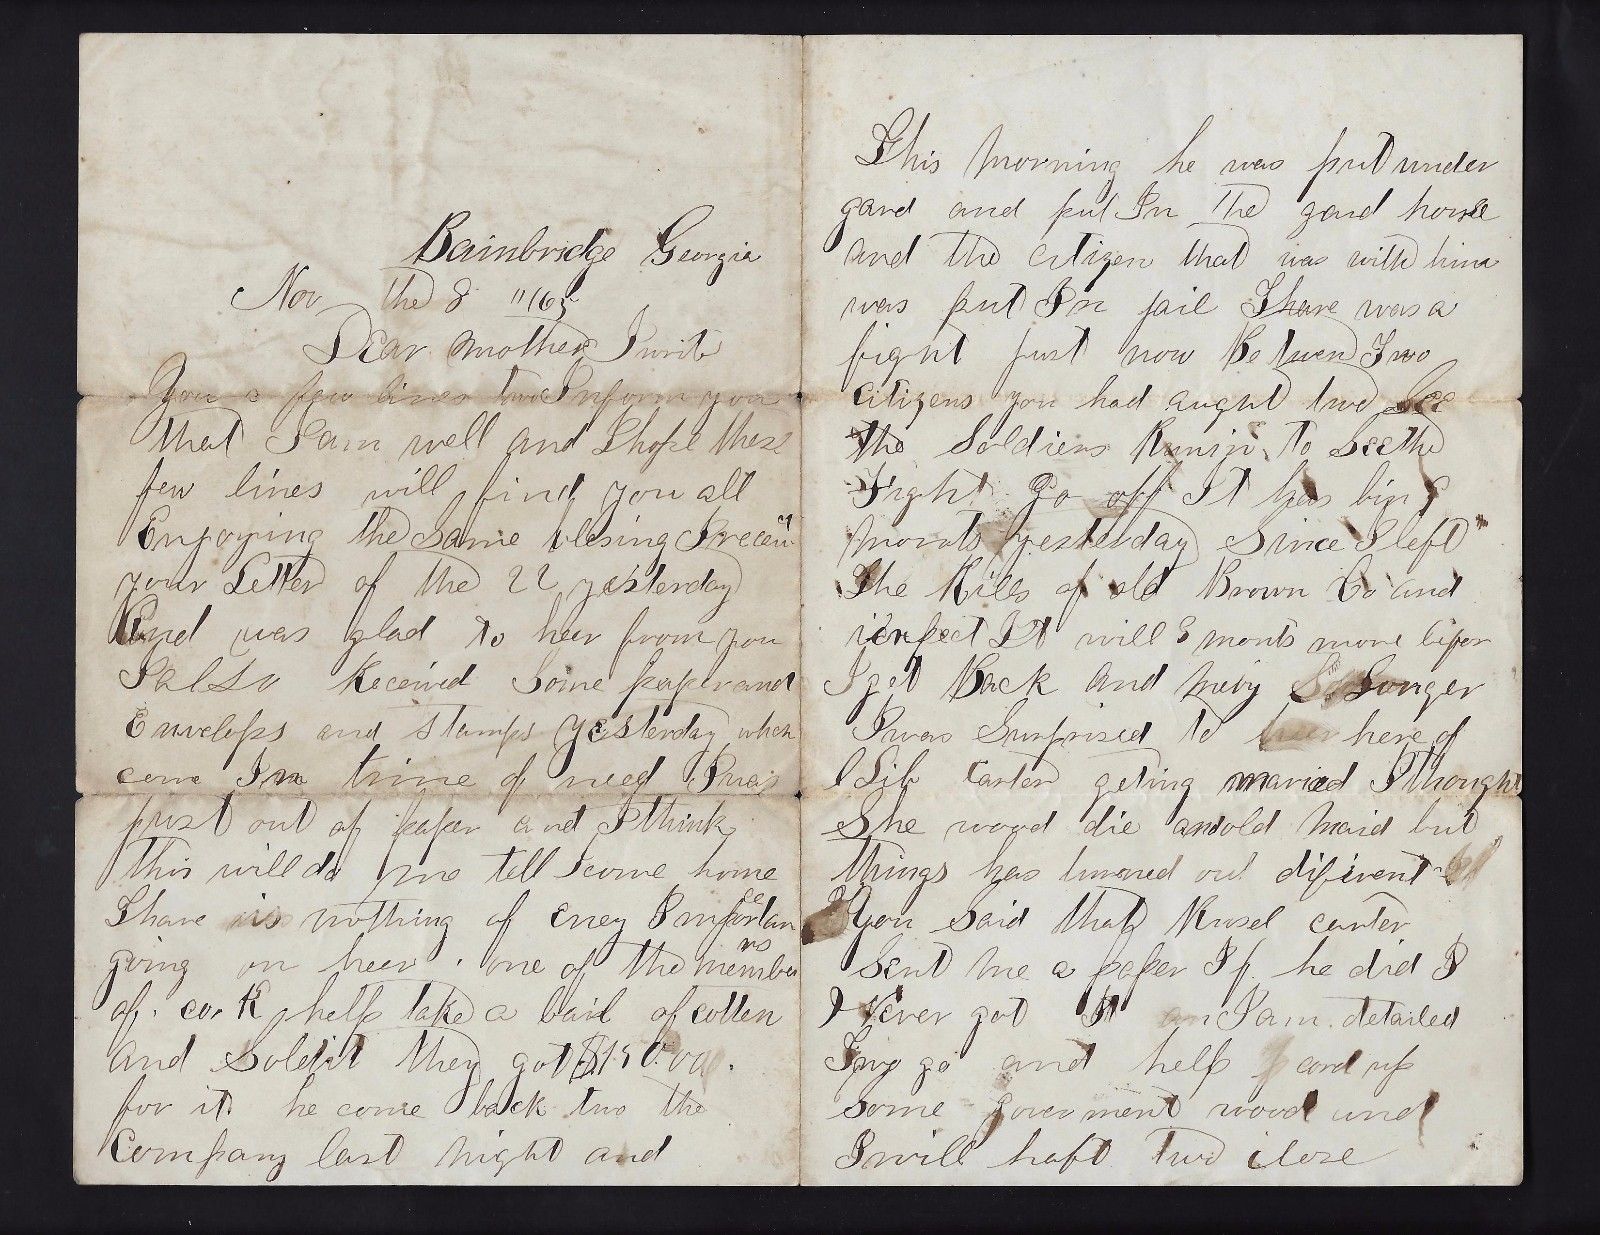 Bainbridge Georgia
Nov the 8 "/65
Dear mother I write
You a few lines two Inform you
that I am well and I hope these
few lines will find you all
Enjoying the Same blesing I receiv
your Letter of the 22 yesterday
And was glad to heer from you
I also Received Some paper and
Envelops and stamps yesterday which
come In time of need I was
just out of paper and I think
this will do me tell I come home
Thare is nothing of eney Importance
going on heer . one of the members
of . co. K help take a bail of cotten
and Soldit they got $150.00 .
for it he come back two the
Company last night and
This morning he was put under
gard and put In the gard house
and the citizen that was with him
was put In jail Thare was a
fight just now Between Two
citizens you had aught two See
the Soldiers Runin to See the
Fight go off It has bin 9
monts yesterday Since I left
The Hills of old Brown Co and
I exfect It will 3 monts more befor
I get Back and meby Longer
I was Surprised to here of
Lib Carter geting maried I thought
She wood die an old maid but
things has turned out diferent
You Said that Rusel carter
Sent me a paper If he did I
Never got It I am detailed
to go and help cord up
some goverment wood and
I will haft two close